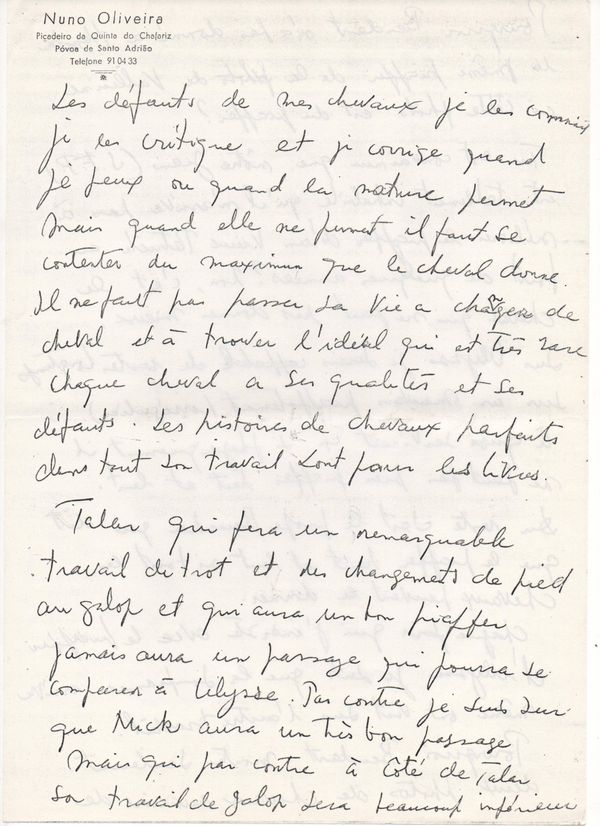 Nuno Oliveira
Picadeiro da Quinta do Chafariz
Póvoa de Santo Adrião
Telefone 910433
Les défauts de mes chevaux je les connais
je les critique et je corrige quand
je peux ou quand la nature permet
Mais quand elle ne permet il faut se
contenter du maximum que le cheval donne.
Il ne faut pas passer sa vie a changer de
cheval et à trouver l'idéal qui et très rare
Chaque cheval a ses qualités et ses
défauts. Les histoires de chevaux parfaits
dans tout son travail sont pour les livres.
Talar qui fera un remarquable
travail de trot et des changements de pied
au galop et qui aura un bon piaffer
jamais aura un passage qui pourra se
comparer à Ulysse. Par contre je suis sur
que Mick aura un très bon passage
Mais qui par contre à côté de Talar
son travail de galop sera beaucoup inférieur